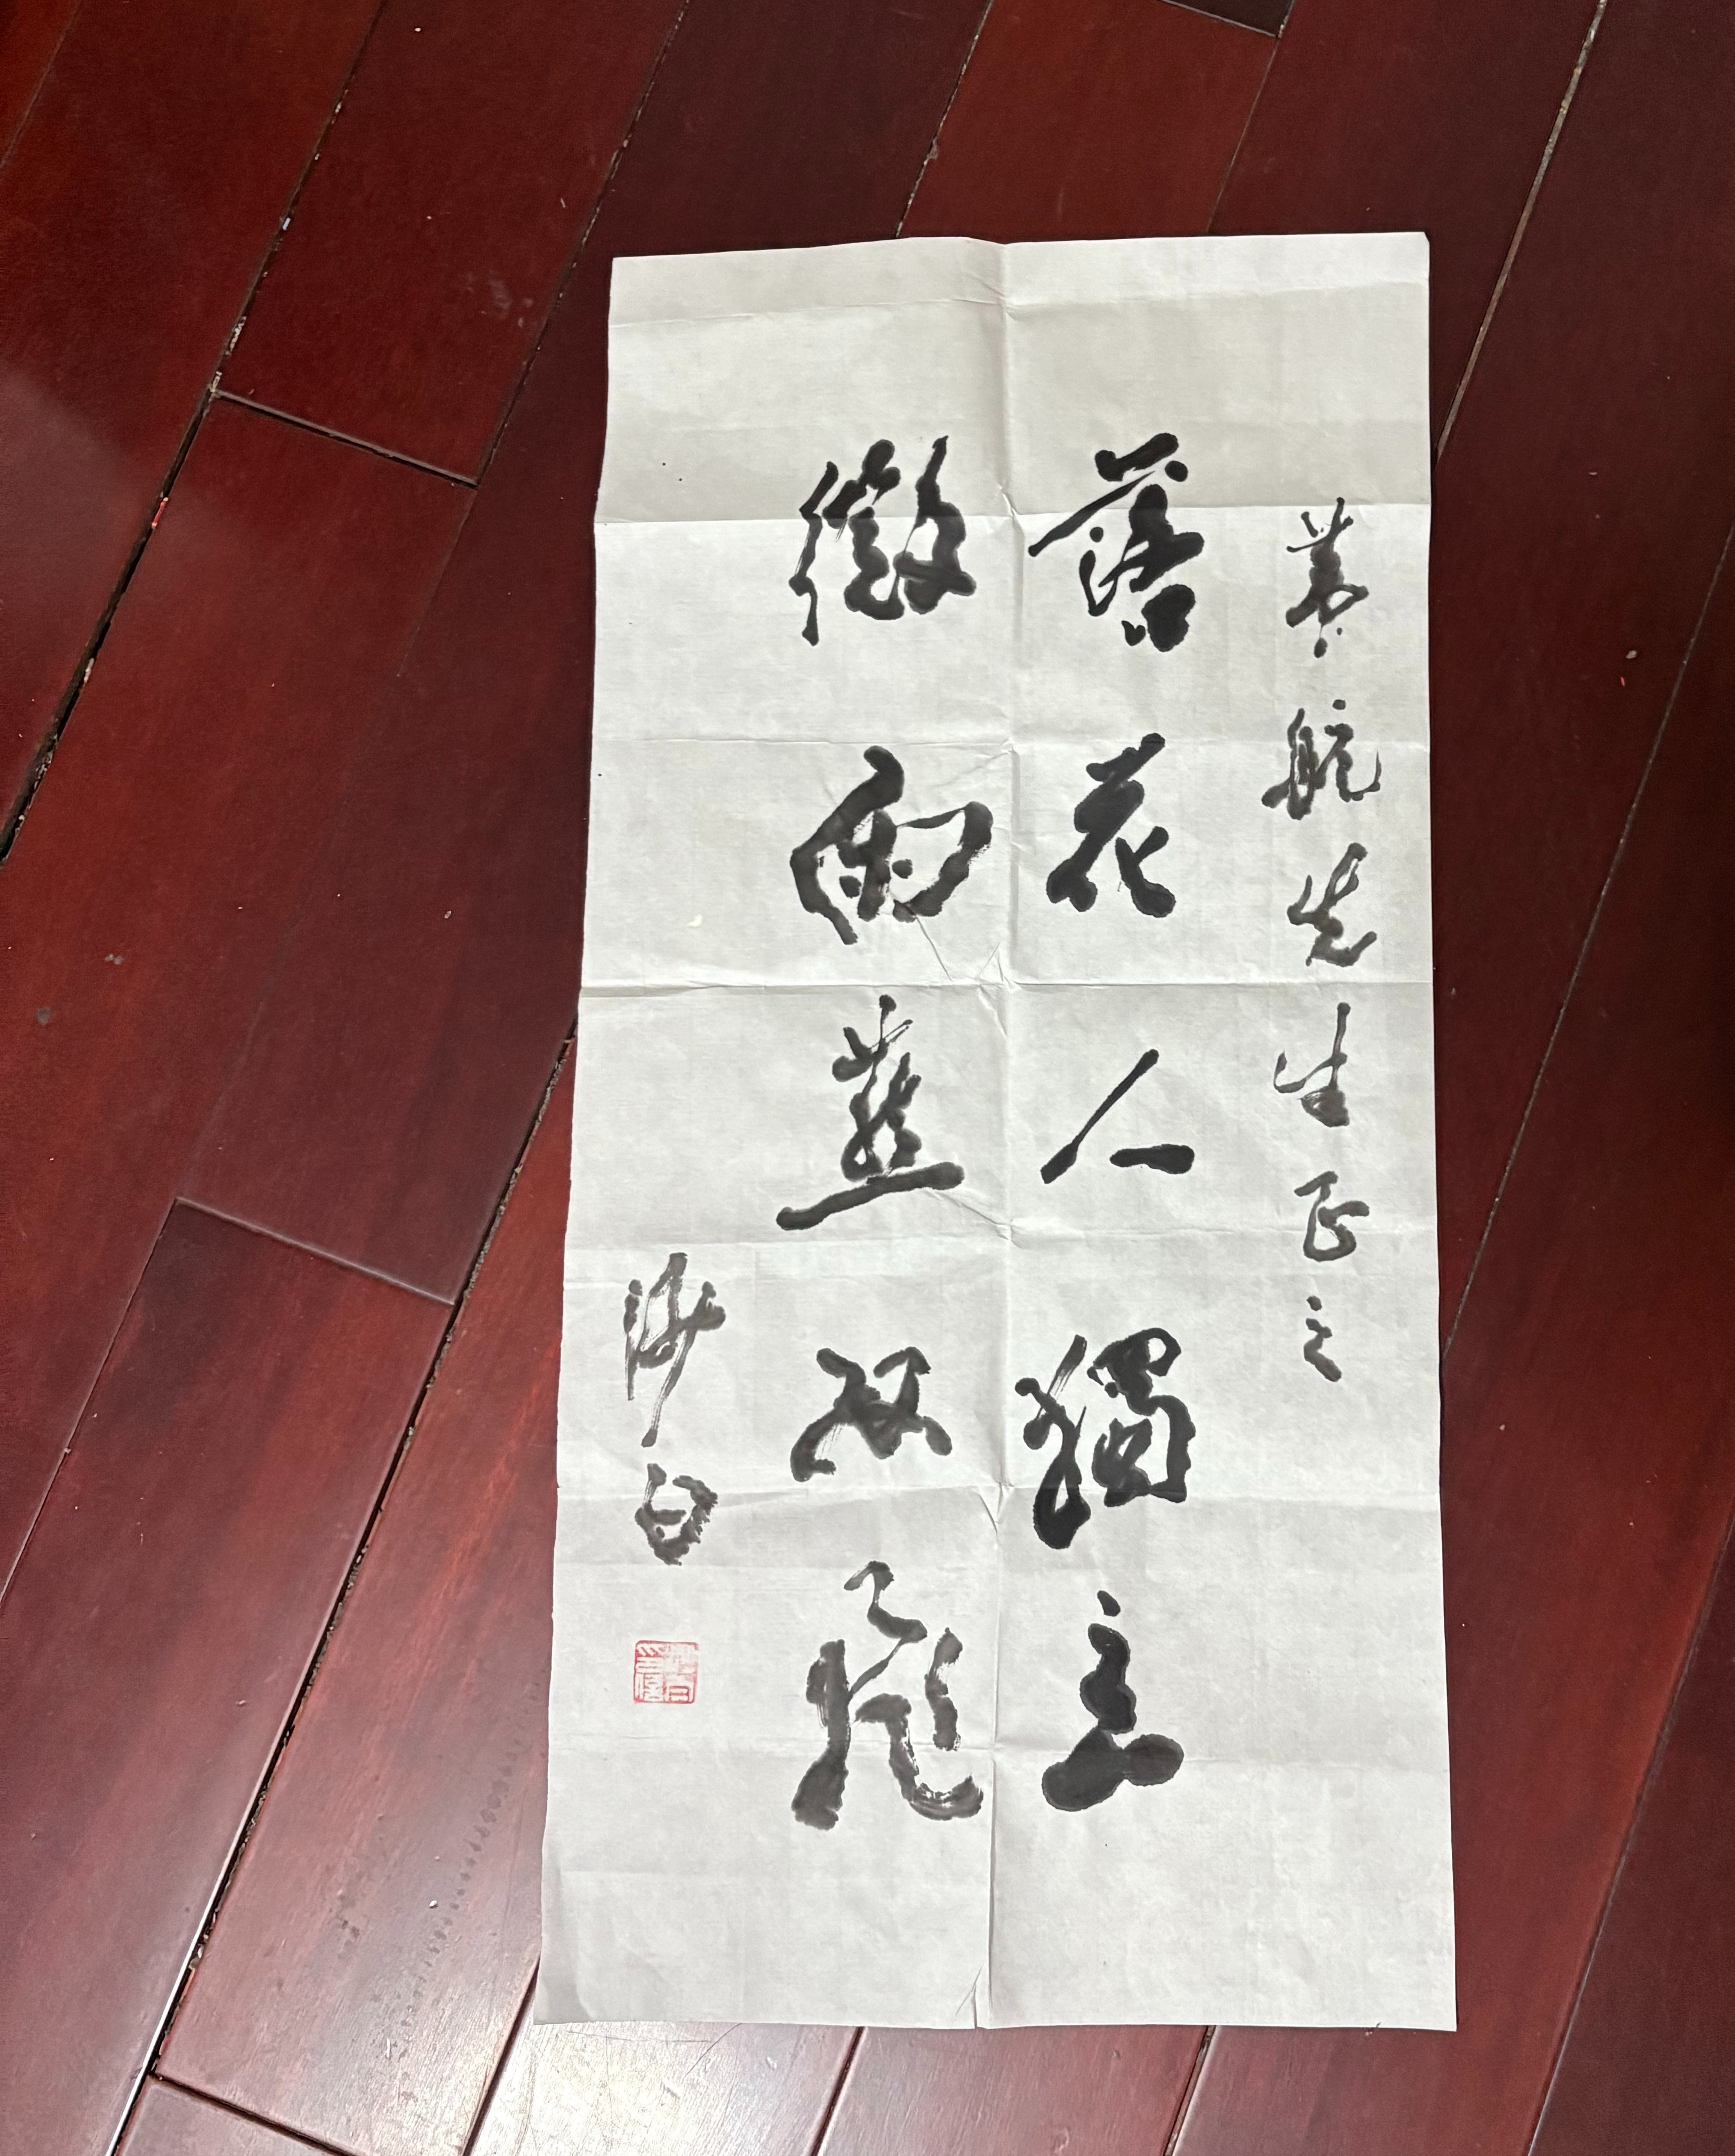 慕航先生正之
落花人獨立
微雨燕双飛
沙白